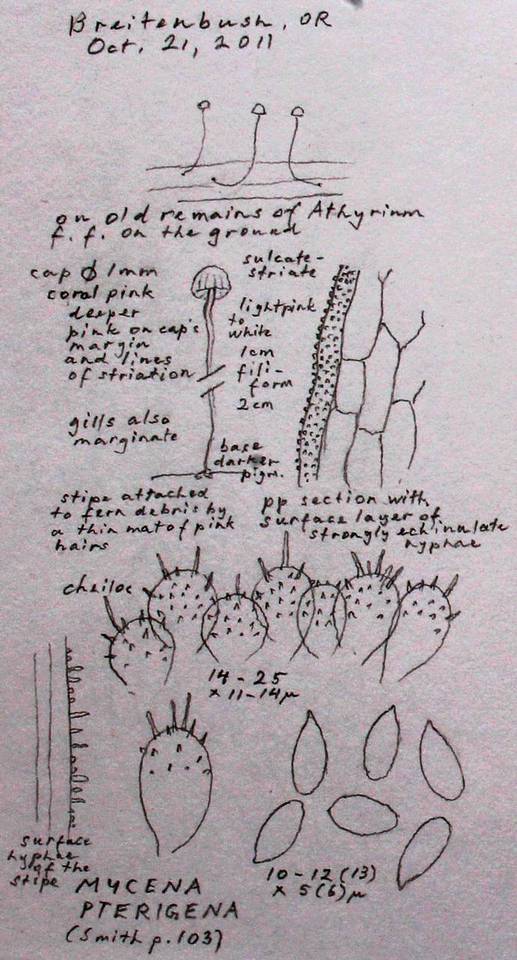 Breitenbush, OR
Oct. 21, 2011
on old remains of Athyrium
f. f. on the ground
cap ϕ 1mm
coral pink
deeper
pink on cap's
margin
and lines
of striation
gills also
marginate
sulcate-
striate
lightpink
to
white
1cm
fili-
form
2cm
base
darker
pigm.
stipe attached
to fern debris by
a thin mat of pink
hairs
pp section with
surface layer of
strongly echinulate
hyphae
cheiloc
14-25
x 11-14μ
surface
hyphae
of the
stipe
10-12(13)
x 5(6)μ
MYCENA
PTERIGENA
(Smith p.103)